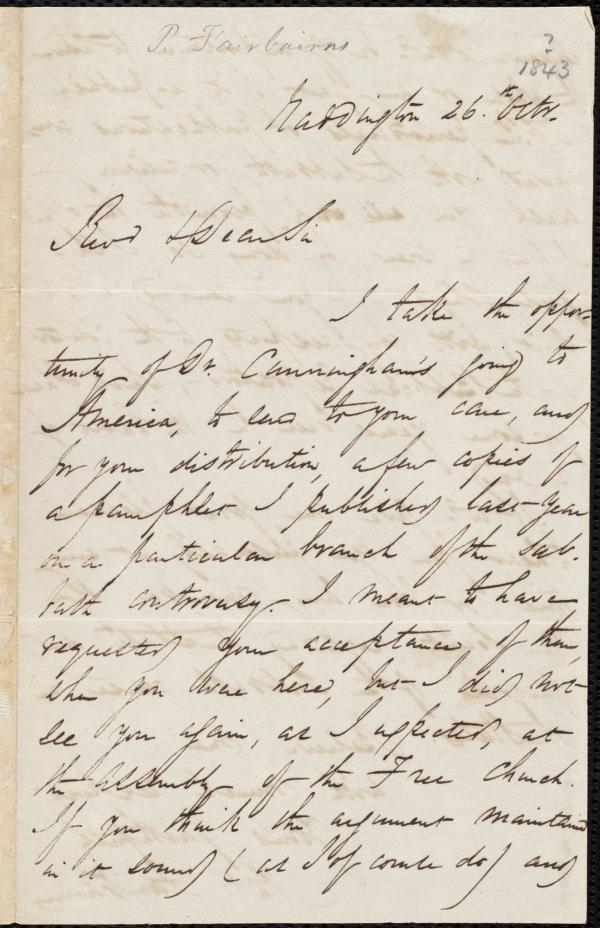 P. Fairbairns
?
1843
Haddington 26.th Octr.
Revd & Dear Sir
I take the oppor-
tunity of Dr. Cunningham's going to
America, to send to your care, and
for your distribution, a few copies of
a pamphlet I published last year
on a particular branch of the Sab-
bath controversy. I meant to have
requested your acceptance of them,
when you were here, but I did not
see you again, as I expected, at
the Assembly of the Free Church.
If you think the argument maintained
in it sound (as I of course do) and